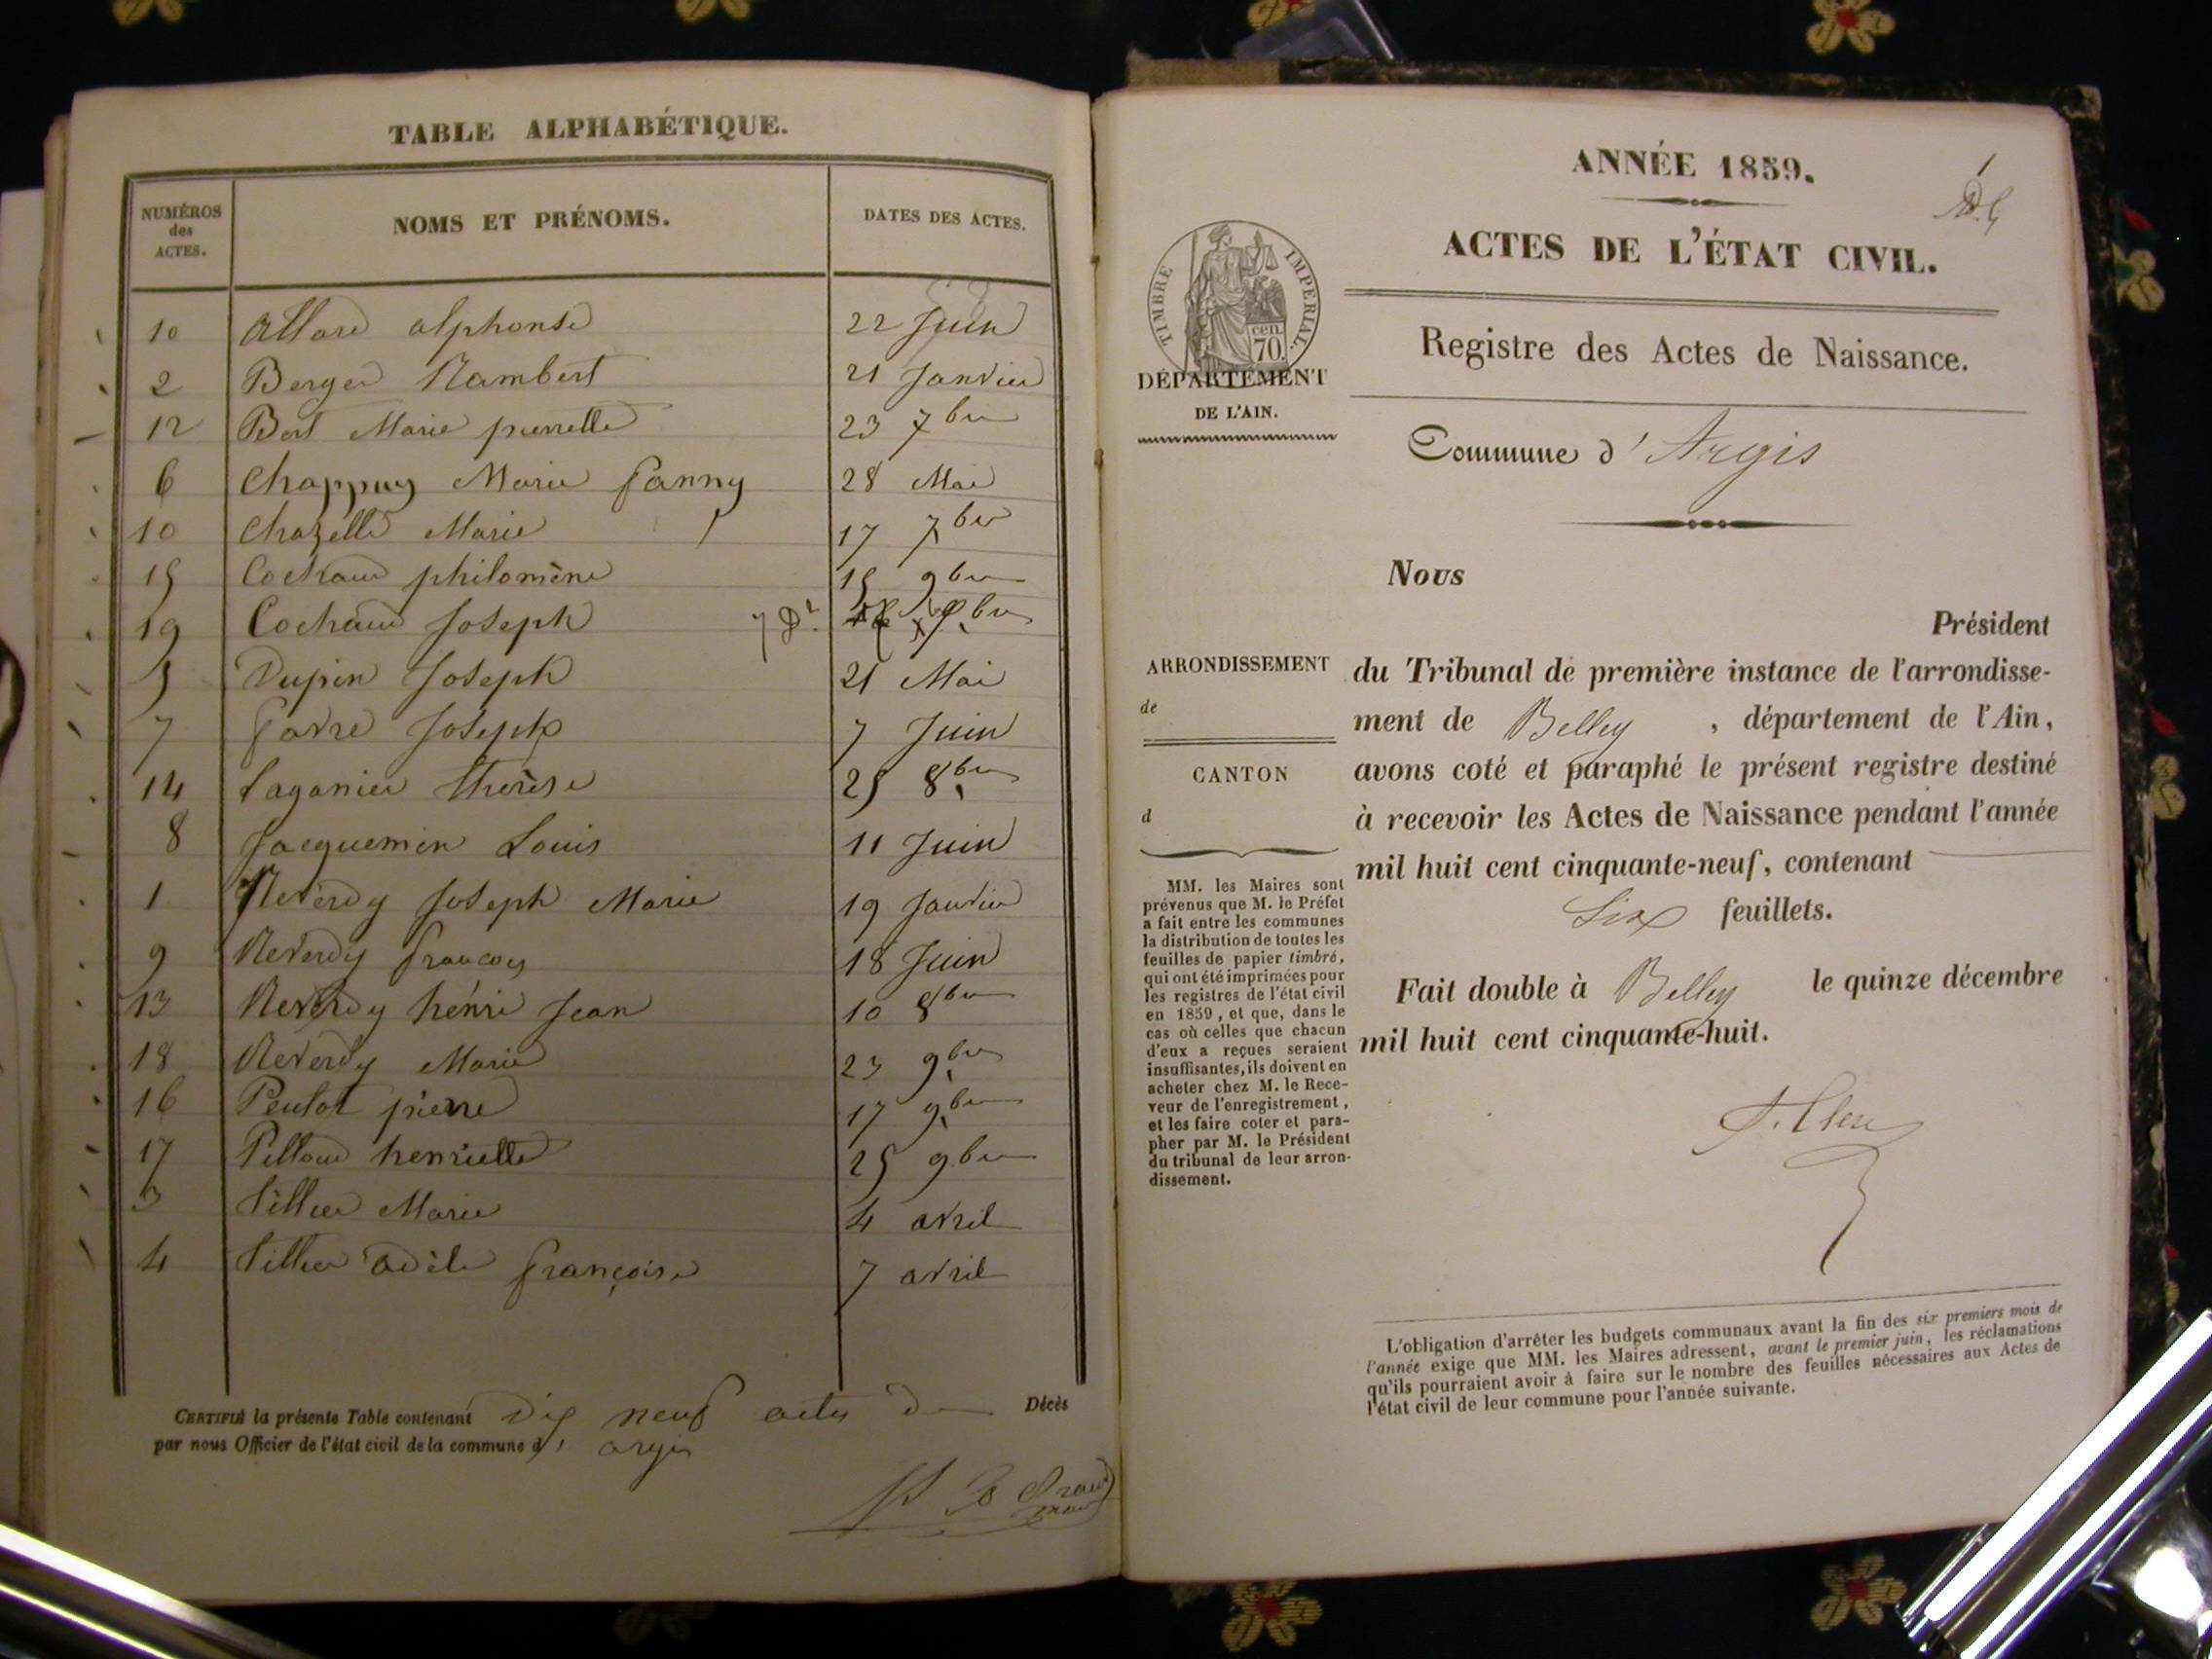 TABLE ALPHABÉTIQUE.
NUMÉROS des ACTES. NOMS ET PRÉNOMS. DATES DES ACTES.
10 Allard alphonse 22 Juin
2 Berger Rambert 21 Janvier
12 Bert Marie pierrette 23 7bre
6 Chappuy Marie fanny 28 Mai
10 Chazelle Marie 17 7bre
15 Cochaud philomène 15 9bre
19 Cochaud Joseph 7 Dr
5 Dupin Joseph 21 Mai
7 favre Joseph 7 Juin
14 Laganier thérèse 25 8bre
8 Jacquemin Louis 11 Juin
1 Reverdy Joseph Marie 19 Janvier
9 Reverdy francois 18 Juin
13 Reverdy hénri Jean 10 8bre
18 Reverdy Marie 23 9bre
16 Penlot pierre 17 9bre
17 Pilloud henriette 25 9bre
3 Tillier Marie 4 avril
4 Tillier adèle françoise 7 avril
CERTIFIÉ la présente Table contenant dix neuf actes de Décès
par nous Officier de l'état civil de la commune d' argis
ANNÉE 1859.
1
ACTES DE L'ÉTAT CIVIL.
TIMBRE IMPERIAL.
cen.
70.
Registre des Actes de Naissance.
DÉPARTEMENT
DE L'AIN.
Commune d'Argis
Nous
Président
ARRONDISSEMENT
de
CANTON
d
du Tribunal de première instance de l'arrondisse-
ment de Belley , département de l'Ain,
avons coté et paraphé le présent registre destiné
à recevoir les Actes de Naissance pendant l'année
mil huit cent cinquante-neuf, contenant
Six feuillets.
Fait double à Belley le quinze décembre
mil huit cent cinquante-huit.
MM. les Maires sont
prévenus que M. le Préfet
a fait entre les communes
la distribution de toutes les
feuilles de papier timbré,
qui ont été imprimées pour
les registres de l'état civil
en 1859, et que, dans le
cas où celles que chacun
d'eux a reçues seraient
insuffisantes, ils doivent en
acheter chez M. le Rece-
veur de l'enregistrement,
et les faire coter et para-
pher par M. le Président
du tribunal de leur arron-
dissement.
L'obligation d'arrêter les budgets communaux avant la fin des six premiers mois de
l'année exige que MM. les Maires adressent, avant le premier juin, les réclamations
qu'ils pourraient avoir à faire sur le nombre des feuilles nécessaires aux Actes de
l'état civil de leur commune pour l'année suivante.